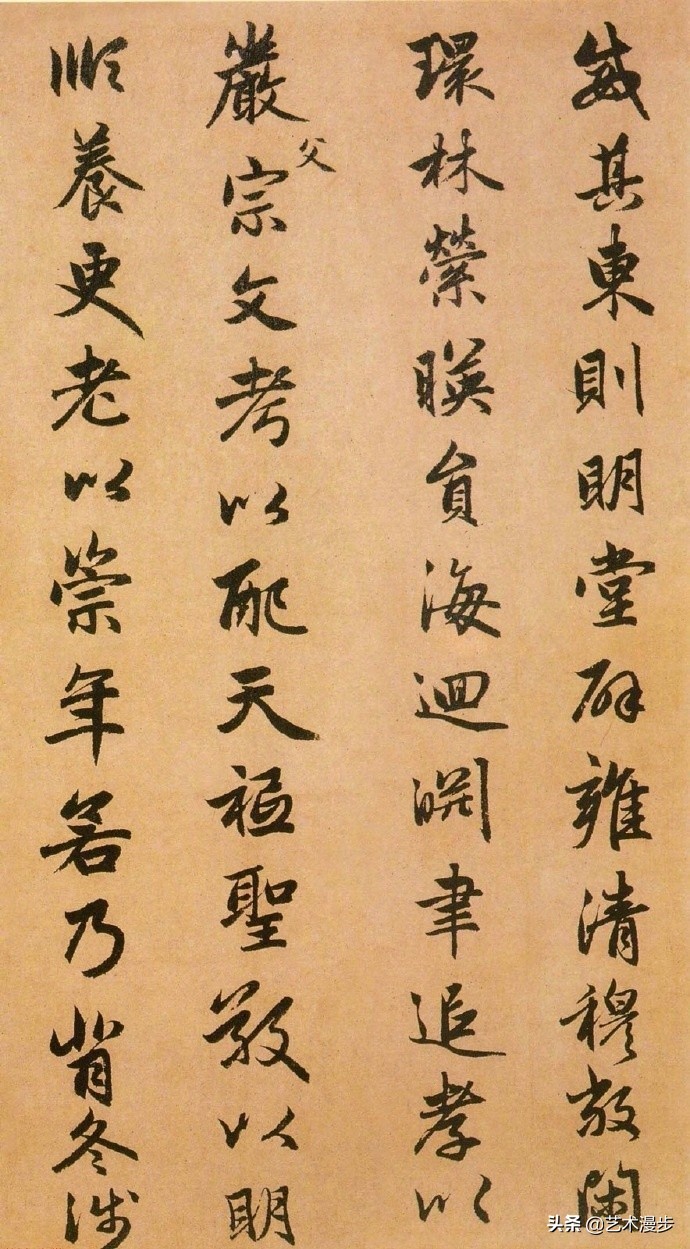 威其東則明堂辟雍清穆敞閑
環林縈暎員海迴淵聿追孝以
嚴父宗文考以配天祗聖敬以明
順養更老以崇年若乃背冬涉
头条 @艺术漫步